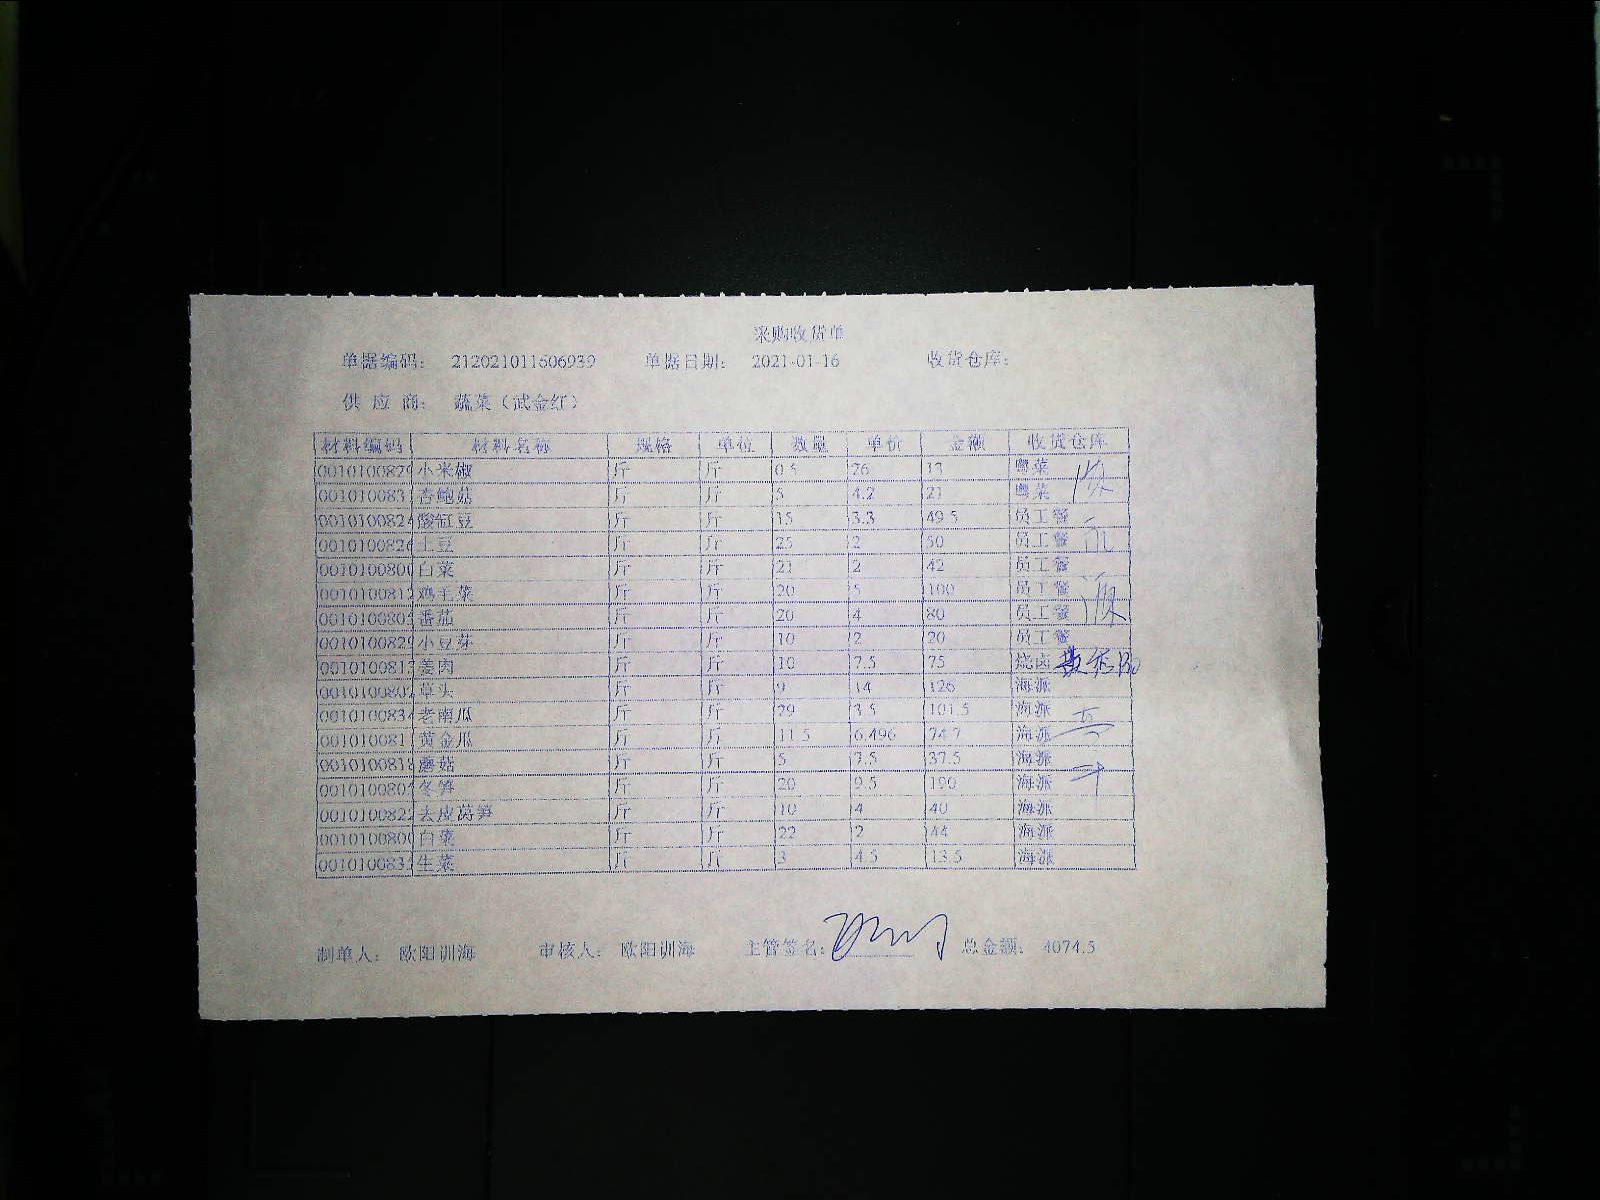 采购收货单
单据编码: 212021011606939 单据日期: 2021-01-16 收货仓库:
供 应 商: 蔬菜(武金红)
材料编码 材料名称 规格 单位 数量 单价 金额 收货仓库
001010082 小米椒 斤 斤 0.5 26 13 粤菜
001010083 杏鲍菇 斤 斤 5 4.2 21 粤菜
001010082 酸缸豆 斤 斤 15 3.3 49.5 员工餐
001010082 土豆 斤 斤 25 2 50 员工餐
001010080 白菜 斤 斤 21 2 42 员工餐
001010081 鸡毛菜 斤 斤 20 5 100 员工餐
001010080 番茄 斤 斤 20 4 80 员工餐
001010082 小豆芽 斤 斤 10 2 20 员工餐
001010081 姜肉 斤 斤 10 7.5 75 烧卤
001010080 草头 斤 斤 9 14 126 海派
001010083 老南瓜 斤 斤 29 3.5 101.5 海派
001010081 黄金瓜 斤 斤 11.5 6.496 74.7 海派
001010081 蘑菇 斤 斤 5 7.5 37.5 海派
001010080 冬笋 斤 斤 20 9.5 190 海派
001010082 去皮莴笋 斤 斤 10 4 40 海派
001010080 白菜 斤 斤 22 2 44 海派
001010083 生菜 斤 斤 3 4.5 13.5 海派
制单人: 欧阳训海 审核人: 欧阳训海 主管签名: 总金额: 4074.5